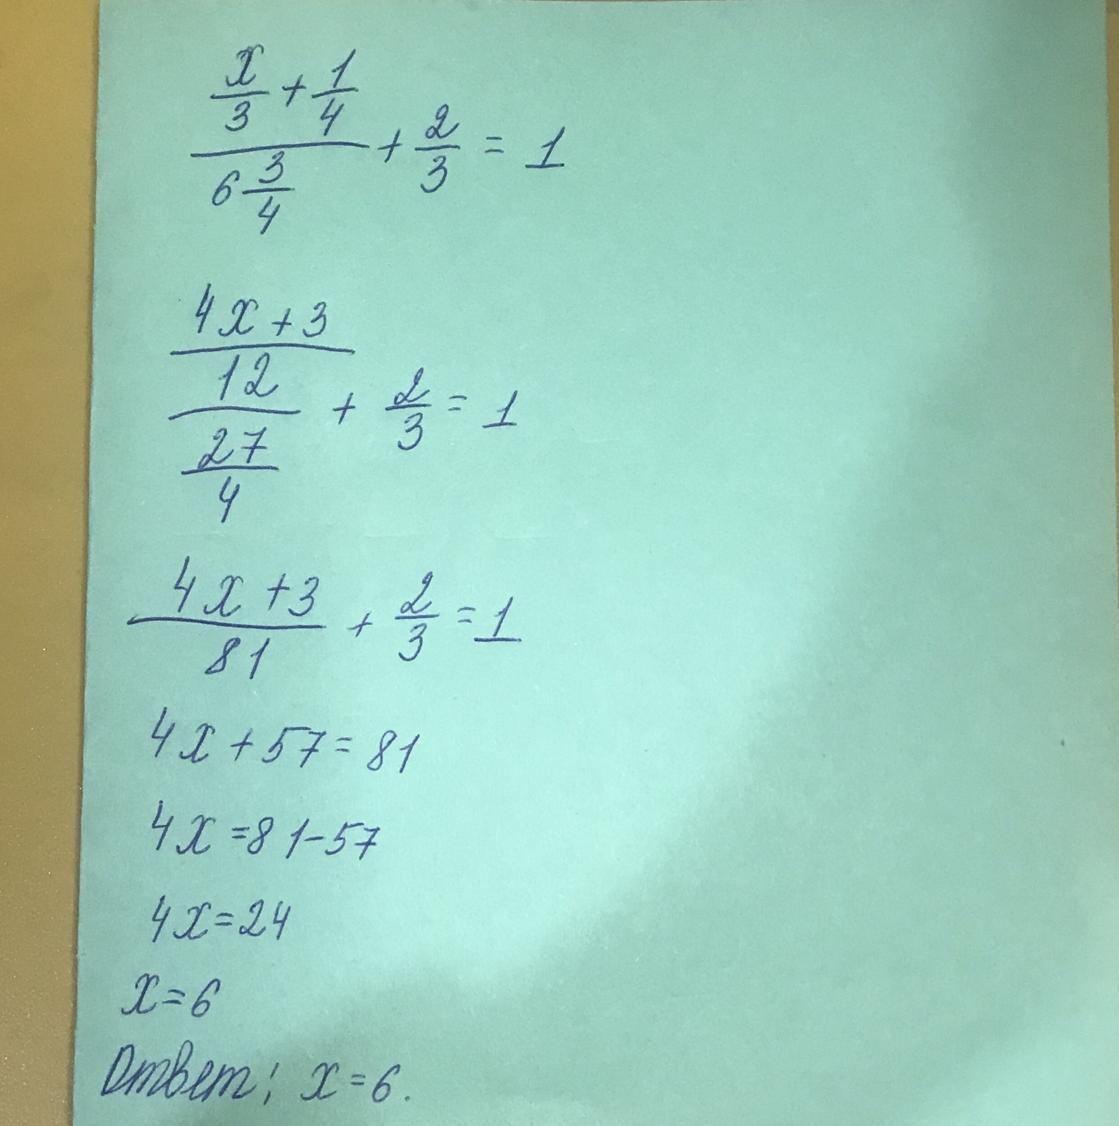 (x/3 + 1/4)/(6 3/4) + 2/3 = 1
((4x + 3)/12)/(27/4) + 2/3 = 1
(4x + 3)/81 + 2/3 = 1
4x + 57 = 81
4x = 81 - 57
4x = 24
x = 6
Ответ: x = 6.